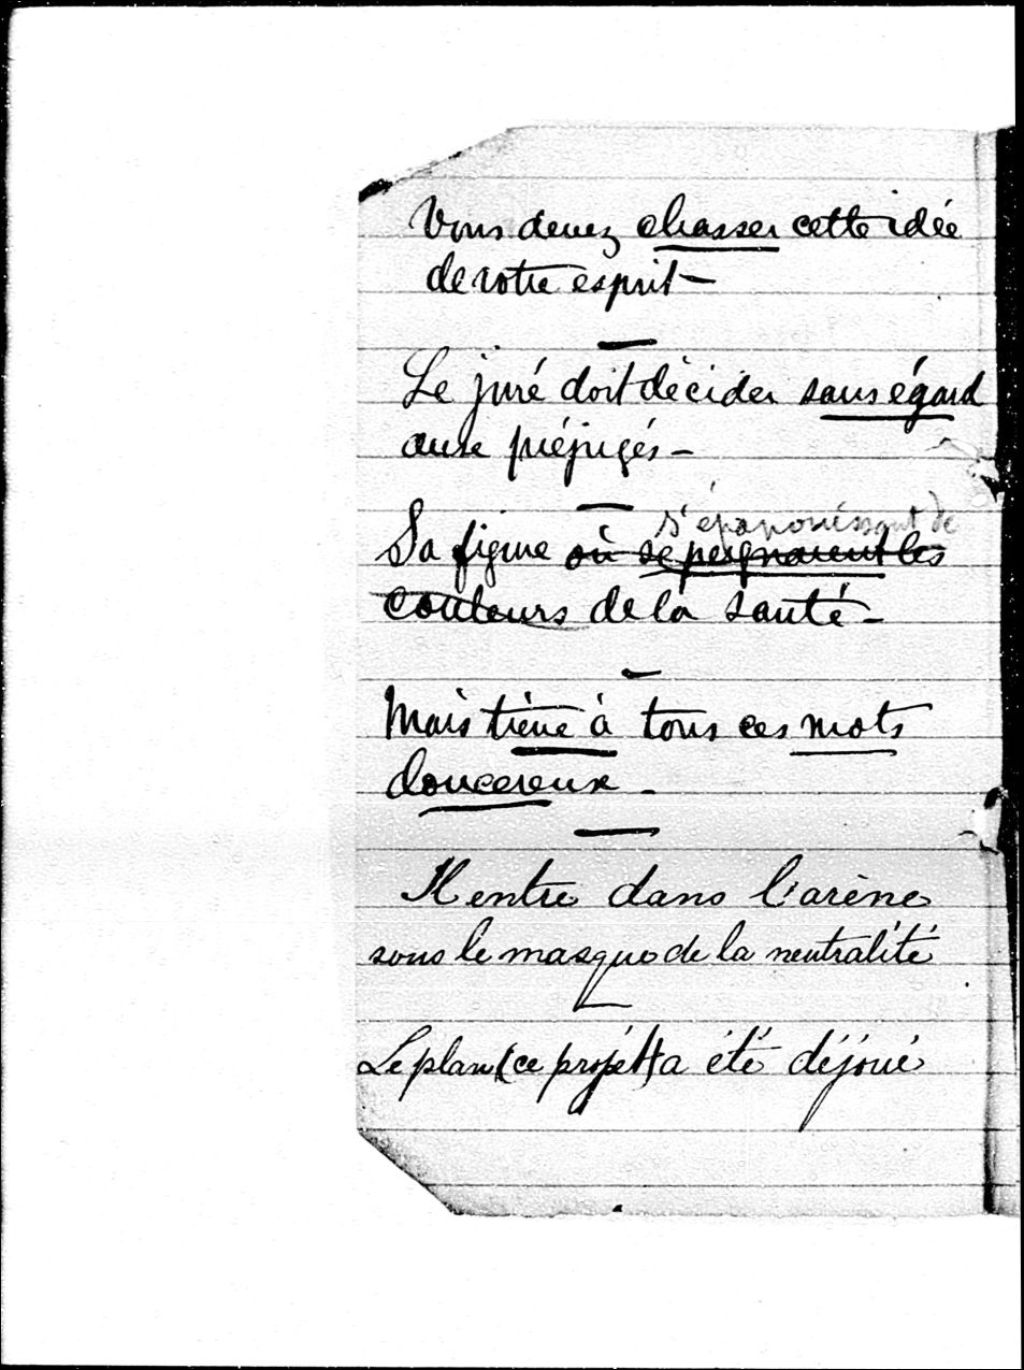 Vous devez chasser cette idée
de votre esprit —
Le juré doit décider sans égard
aux préjugés —
s'épanouissant de
Sa figure où se peignaient les
couleurs de la santé —
Mais trève à tous ces mots
doucereux —
Il entre dans l'arène
sous le masque de la neutralité
Le plan (ce projet) a été déjoué